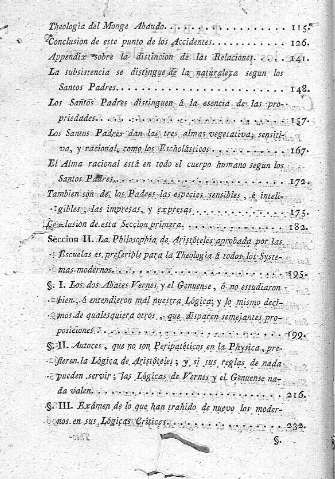 Theologia del Monge Abaudo. 115.
Conclusion de este punto de los Accidentes. 126.
Appendix sobre la distincion de las Relaciones. 141.
La subsistencia se distingue de la naturaleza segun los
Santos Padres. 148.
Los Santos Padres distinguen á la esencia de las pro-
piedades. 157.
Los Santos Padres dan las tres almas vegetativa, sensiti-
va, y racional, como los Escholásticos. 167.
El Alma racional está en todo el cuerpo humano segun los
Santos Padres. 172.
Tambien son de los Padres las especies sensibles, é inteli-
gibles, las impresas, y expresas. 175.
Resolucion de esta Seccion primera. 182.
Seccion II. La Philosophia de Aristóteles aprobada por las
Escuelas es preferible para la Theologia á todos los Syste-
mas modernos. 195.
§. I. Los dos Abates Vernes y el Genuense, ó no estudiaron
bien, ó entendieron mal nuestra Lógica; y lo mismo deci-
mos de qualesquiera otros, que disparen semejantes pro-
posiciones. 199.
§. II. Autores, que no son Peripatéticos en la Physica, pre-
fieren la Lógica de Aristóteles; y si sus reglas de nada
pueden servir; las Lógicas de Vernes y el Genuense na-
da valen. 216.
§. III. Exámen de lo que han trahido de nuevo los moder-
nos en sus Lógicas Críticas. 232.
§.